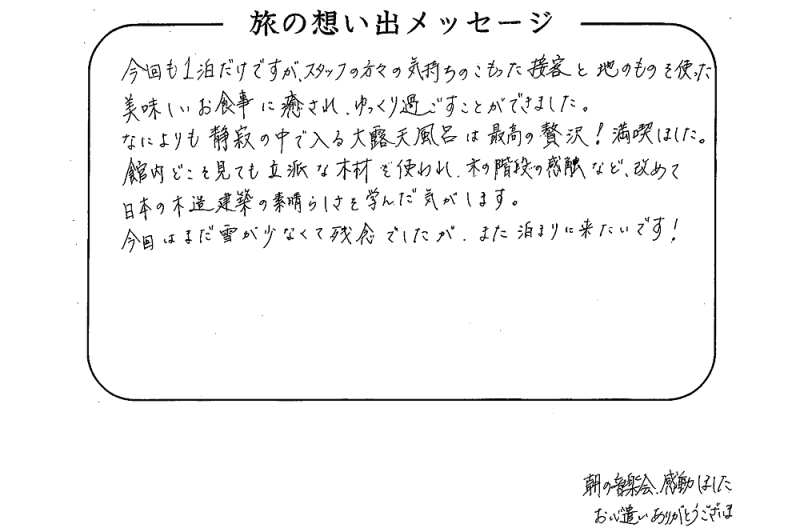 旅の想い出メッセージ
今回も1泊だけですが、スタッフの方々の気持ちのこもった接客と地のものを使った
美味しいお食事に癒され、ゆっくり過ごすことができました。
なによりも静寂の中で入る大露天風呂は最高の贅沢!満喫しました。
館内どこを見ても立派な木材が使われ、木の階段の感触など、改めて
日本の木造建築の素晴らしさを学んだ気がします。
今回はまだ雪が少なくて残念でしたが、また泊まりに来たいです!
朝の音楽会、感動しました
お心遣いありがとうございま